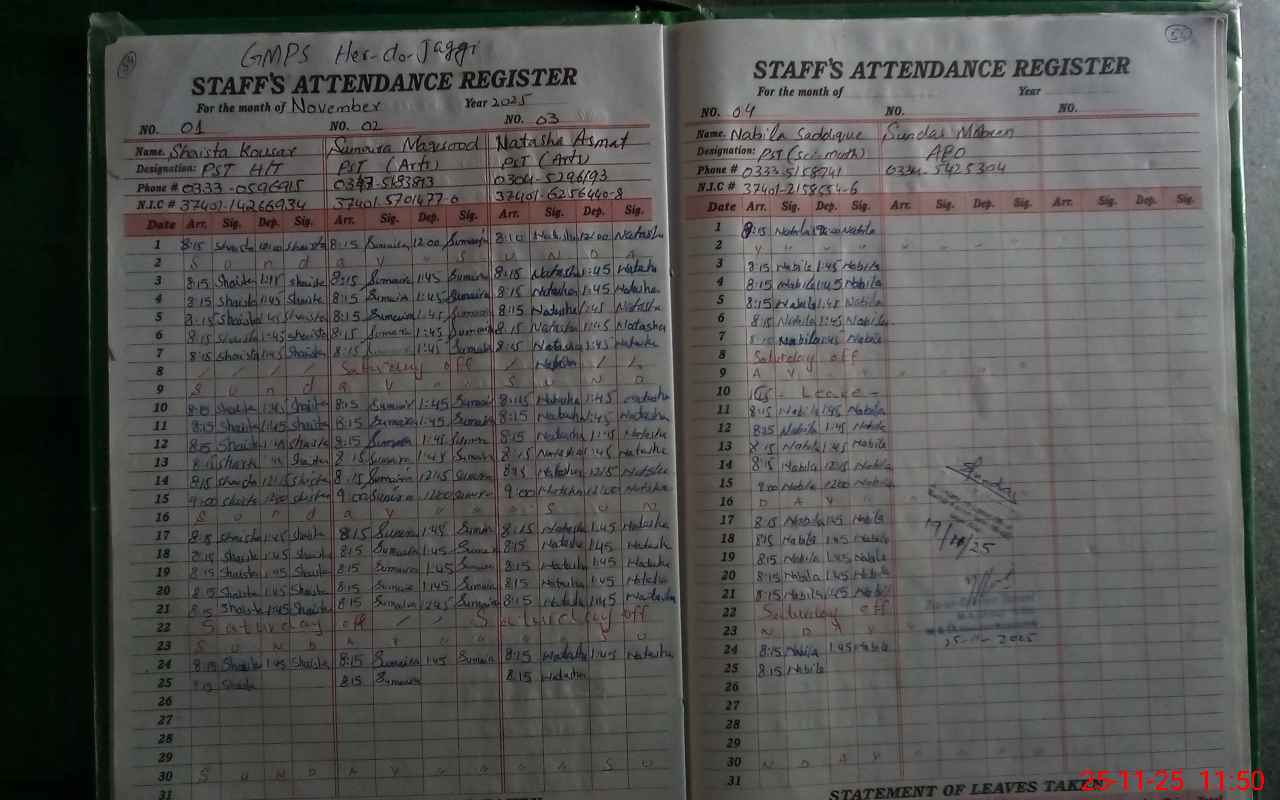 GMPS Her-do-Jaggi
STAFF'S ATTENDANCE REGISTER
For the month of November Year 2025
NO. 01 NO. 02 NO. 03
Name. Shaista Kousar Natasha Asmat
Designation: PST H/T PST (Arts) PST (Arts)
Phone # 0333-0596915 0304-5296193
N.I.C # 37401-6256440-8
Date Arr. Sig. Dep. Sig. Arr. Sig. Dep. Sig. Arr. Sig. Dep. Sig.
1 8:15 Shaista 12:00 Shaista 8:15 Sumaira 12:00 Sumaira 8:10 Natasha 12:00 Natasha
2 S u n d a y " S U N D A
3 8:15 Shaista 1:45 Shaista 8:15 Sumaira 1:45 Sumaira 8:15 Natasha 1:45 Natasha
4 8:15 Shaista 1:45 Shaista 8:15 Sumaira 1:45 Sumaira 8:15 Natasha 1:45 Natasha
5 8:15 Shaista 1:45 Shaista 8:15 Sumaira 1:45 Sumaira 8:15 Natasha 1:45 Natasha
6 8:15 Shaista 1:45 Shaista 8:15 Sumaira 1:45 Sumaira 8:15 Natasha 1:45 Natasha
7 8:15 Shaista 1:45 Shaista 8:15 1:45 Sumaira 8:15 Natasha 1:45 Natasha
8 Saturday off
9 S u n d a y " " S U N D
10 8:15 Shaista 1:45 Shaista 8:15 Sumaira 1:45 Sumaira 8:15 Natasha 1:45 Natasha
11 8:15 Shaista 1:45 Shaista 8:15 Sumaira 1:45 Sumaira 8:15 Natasha 1:45 Natasha
12 8:15 Shaista 1:45 Shaista 8:15 Sumaira 1:45 Sumaira 8:15 Natasha 1:45 Natasha
13 8:15 Shaista 1:45 Shaista 8:15 Sumaira 1:45 Sumaira 8:15 Natasha 1:45 Natasha
14 8:15 Shaista 12:15 Shaista 8:15 Sumaira 12:15 Sumaira 8:15 Natasha 12:15 Natasha
15 9:00 Shaista 12:00 Shaista 9:00 Sumaira 12:00 Sumaira 9:00 Natasha 12:00 Natasha
16 S u n d a y
17 8:15 Shaista 1:45 Shaista 8:15 Sumaira 1:45 Sumaira 8:15 Natasha 1:45 Natasha
18 8:15 Shaista 1:45 Shaista 8:15 Sumaira 1:45 Sumaira 8:15 Natasha 1:45 Natasha
19 8:15 Shaista 1:45 Shaista 8:15 Sumaira 1:45 Sumaira 8:15 Natasha 1:45 Natasha
20 8:15 Shaista 1:45 Shaista 8:15 Sumaira 1:45 Sumaira 8:15 Natasha 1:45 Natasha
21 8:15 Shaista 1:45 Shaista 8:15 Sumaira Sumaira 8:15 Natasha 1:45 Natasha
22 Saturday off " " Saturday off
23 S U N D A Y
24 8:15 Shaista 1:45 Shaista 8:15 Sumaira 1:45 Sumaira 8:15 Natasha 1:45 Natasha
25 8:15 Shaista 8:15 Sumaira 8:15 Natasha
26
27
28
29
30 S U N D A Y
31
STAFF'S ATTENDANCE REGISTER
For the month of Year
NO. 04 NO. NO.
Name. Nabila Saddique Sundas
Designation: PST (sci-math)
Phone # 0333-5158741 5425304
N.I.C #
Date Arr. Sig. Dep. Sig. Arr. Sig. Dep. Sig. Arr. Sig. Dep. Sig.
1 8:15 Nabila 12:00 Nabila
2 Y " " "
3 8:15 Nabila 1:45 Nabila
4 8:15 Nabila 1:45 Nabila
5 8:15 Nabila 1:45 Nabila
6 8:15 Nabila 1:45 Nabila
7 8:15 Nabila 1:45 Nabila
8 Saturday off
9 A Y
10 Leave -
11 8:15 Nabila 1:45 Nabila
12 8:15 Nabila 1:45 Nabila
13 8:15 Nabila 1:45 Nabila
14 8:15 Nabila 12:15 Nabila
15 9:00 Nabila 12:00 Nabila
16 D A Y
17 8:15 Nabila 1:45 Nabila
18 8:15 Nabila 1:45 Nabila
19 8:15 Nabila 1:45 Nabila
20 8:15 Nabila 1:45 Nabila
21 8:15 Nabila 1:45 Nabila
22 Saturday off
23 N D A Y
24 8:15 Nabila 1:45 Nabila
25 8:15 Nabila
25-11-2025
26
27
28
29
30 N D A Y
31
STATEMENT OF LEAVES TAKEN
25-11-25 11:50